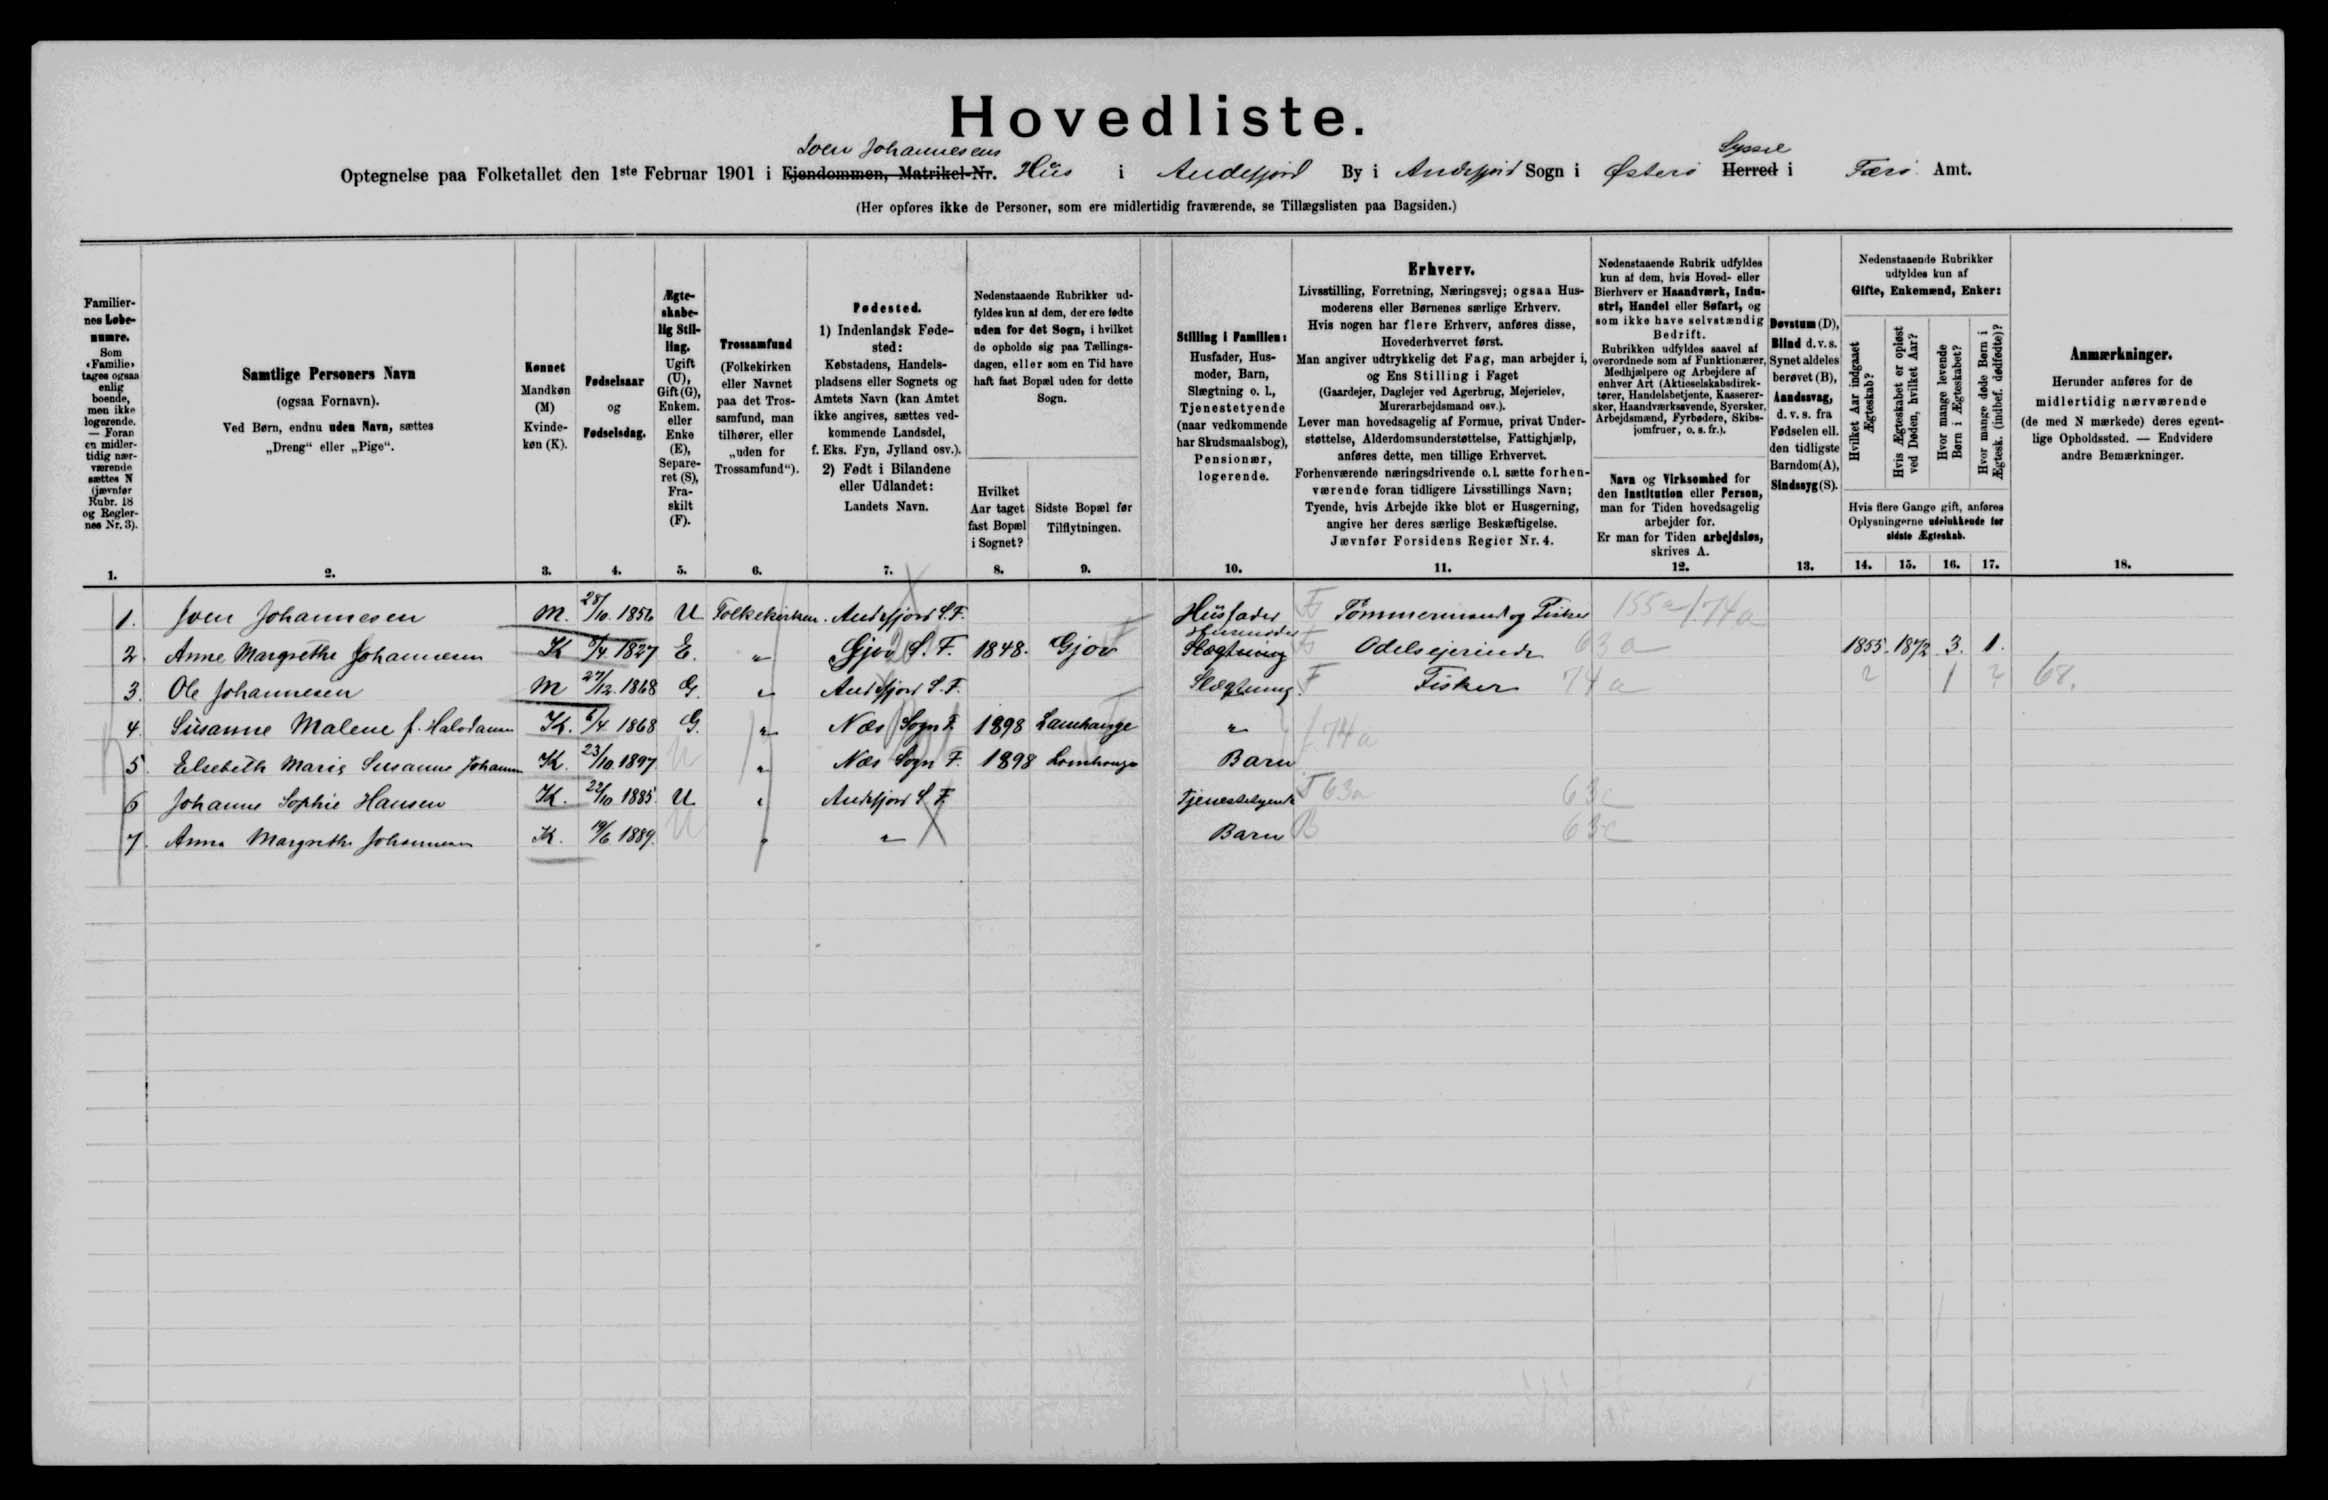 Hovedliste.
Joen Johannesens
Optegnelse paa Folketallet den 1ste Februar 1901 i Ejendommen, Matrikel-Nr. Hüs i Andefjord By i Andefjord Sogn i Østerø Herred i Færø Amt.
Syssel
(Her opføres ikke de Personer, som ere midlertidig fraværende, se Tillægslisten paa Bagsiden.)
Familier-
nes Løbe-
numre.
Som
«Familie»
tages ogsaa
enlig
boende,
men ikke
logerende.
— Foran
en midler-
tidig nær-
værende
sættes N
(jævnfør
Rubr. 18
og Regler-
nes Nr. 3).
1.
Samtlige Personers Navn
(ogsaa Fornavn).
Ved Børn, endnu uden Navn, sættes
„Dreng“ eller „Pige“.
2.
Kønnet
Mandkøn
(M)
Kvinde-
køn (K).
3.
Fødselsaar
og
Fødselsdag.
4.
Ægte-
skabe-
lig Stil-
ling.
Ugift
(U),
Gift (G),
Enkem.
eller
Enke
(E),
Separe-
ret (S),
Fra-
skilt
(F).
5.
Trossamfund
(Folkekirken
eller Navnet
paa det Tros-
samfund, man
tilhører, eller
„uden for
Trossamfund“).
6.
Fødested.
1) Indenlandsk Føde-
sted:
Købstadens, Handels-
pladsens eller Sognets og
Amtets Navn (kan Amtet
ikke angives, sættes ved-
kommende Landsdel,
f. Eks. Fyn, Jylland osv.).
2) Født i Bilandene
eller Udlandet:
Landets Navn.
7.
Nedenstaaende Rubrikker ud-
fyldes kun af dem, der ere fødte
uden for det Sogn, i hvilket
de opholde sig paa Tællings-
dagen, eller som en Tid have
haft fast Bopæl uden for dette
Sogn.
Hvilket
Aar taget
fast Bopæl
i Sognet?
8.
Sidste Bopæl før
Tilflytningen.
9.
Stilling i Familien:
Husfader, Hus-
moder, Barn,
Slægtning o. l.,
Tjenestetyende
(naar vedkommende
har Skudsmaalsbog),
Pensionær,
logerende.
10.
Erhverv.
Livsstilling, Forretning, Næringsvej; ogsaa Hus-
moderens eller Børnenes særlige Erhverv.
Hvis nogen har flere Erhverv, anføres disse,
Hovederhvervet først.
Man angiver udtrykkelig det Fag, man arbejder i,
og Ens Stilling i Faget
(Gaardejer, Daglejer ved Agerbrug, Mejerielev,
Murerarbejdsmand osv.).
Lever man hovedsagelig af Formue, privat Under-
støttelse, Alderdomsunderstøttelse, Fattighjælp,
anføres dette, men tillige Erhvervet.
Forhenværende næringsdrivende o.l. sætte forhen-
værende foran tidligere Livsstillings Navn;
Tyende, hvis Arbejde ikke blot er Husgerning,
angive her deres særlige Beskæftigelse.
Jævnfør Forsidens Regler Nr. 4.
11.
Nedenstaaende Rubrik udfyldes
kun af dem, hvis Hoved- eller
Bierhverv er Haandværk, Indu-
stri, Handel eller Søfart, og
som ikke have selvstændig
Bedrift.
Rubrikken udfyldes saavel af
overordnede som af Funktionærer,
Medhjælpere og Arbejdere af
enhver Art (Aktieselskabsdirek-
tører, Handelsbetjente, Kasserer-
sker, Haandværkssvende, Syersker,
Arbejdsmænd, Fyrbødere, Skibs-
jomfruer, o. s. fr.).
Navn og Virksomhed for
den Institution eller Person,
man for Tiden hovedsagelig
arbejder for.
Er man for Tiden arbejdsløs,
skrives A.
12.
Døvstum (D),
Blind d. v. s.
Synet aldeles
berøvet (B),
Aandssvag,
d. v. s. fra
Fødselen ell.
den tidligste
Barndom (A),
Sindssyg (S).
13.
Nedenstaaende Rubrikker
udfyldes kun af
Gifte, Enkemænd, Enker:
Hvilket Aar indgaaet
Ægteskab?
Hvis Ægteskabet er opløst
ved Døden, hvilket Aar?
Hvor mange levende
Børn i Ægteskabet?
Hvor mange døde Børn i
Ægtesk. (indbef. dødfødte)?
Hvis flere Gange gift, anføres
Oplysningerne udelukkende for
sidste Ægteskab.
14. 15. 16. 17.
Anmærkninger.
Herunder anføres for de
midlertidig nærværende
(de med N mærkede) deres egent-
lige Opholdssted. — Endvidere
andre Bemærkninger.
18.
1. Joen Johannesen M. 28/10 1856 U Folkekirken. Andefjord S. F. Hüsfader Tømmermand og Fisker 155a/74a
2. Anne Margrethe Johannesen K 5/4 1827 E. " Gjov S. F. 1848. Gjov Husmoder Slægtning Odelsejerinde 63a 1855. 1872. 3. 1.
3. Ole Johannesen M 27/12 1868 G. " Andefjord S. F. Slægtning. F Fisker 74a ? 1 ? 68.
4. Süsanne Malene f. Halvdansen K. 6/4 1868 G. " Næs Sogn F. 1898 Lamhauge " f. 74a
5. Elsebeth Marie Susanne Johannesen K. 23/10 1897 U " Næs Sogn F. 1898 Lamhauge Barn
6. Johanne Sophie Hansen K. 22/10 1885 U " Andefjord S. F. Tjenestetyende T 63a 63c
7. Anna Margrethe Johannesen K. 19/6 1889. U " " Barn B 63c